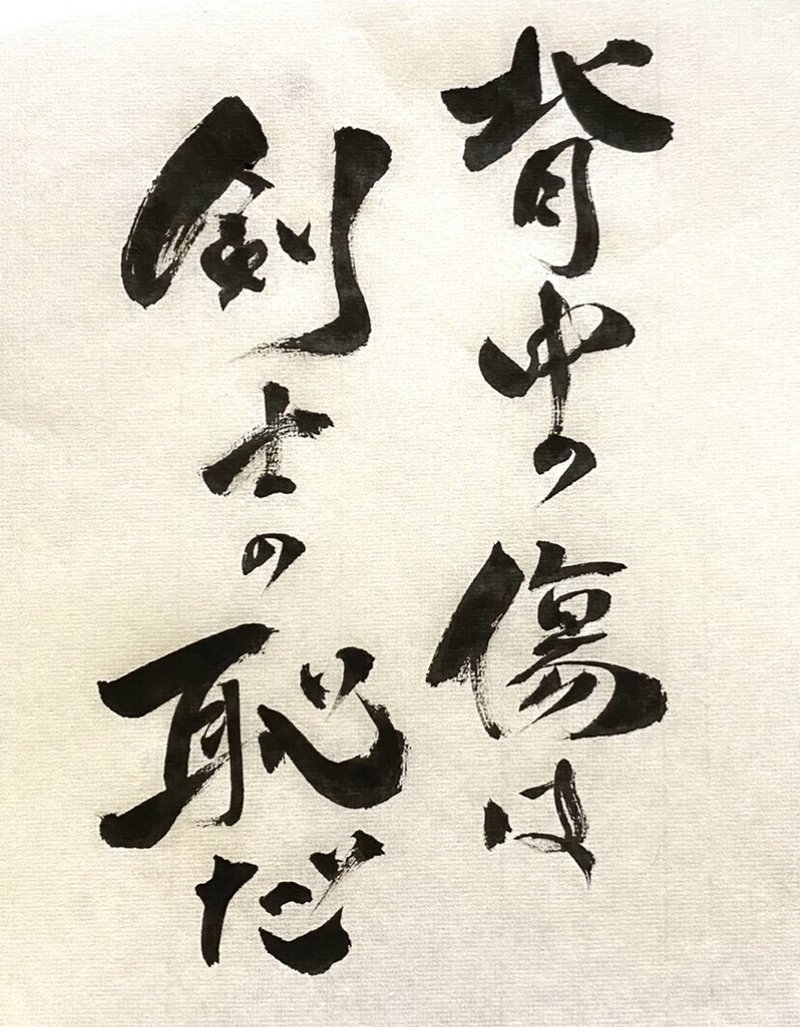 背中の傷は
剣士の恥だ